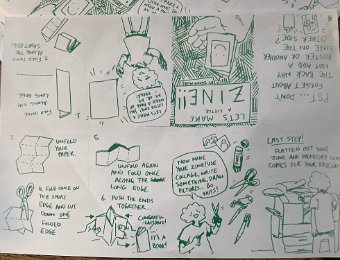 LET'S MAKE
A LITTLE
ZINE!!
PST... DON'T
FORGET ABOUT
THE BACK! WHY
NOT ADD A
POSTER OR ANOTHER
ZINE ON THE
OTHER SIDE?
FOLD
ALONG THE
LONG EDGE
2. FOLD
ALONG THE
SHORT EDGE
3.
UNFOLD
YOUR
PAPER.
4. FOLD ONCE ON
THE SHORT
EDGE AND CUT
DOWN ONE
FOLDED
EDGE
5.
UNFOLD AGAIN
AND FOLD ONCE
ALONG THE
LONG EDGE
6. PUSH THE ENDS
TOGETHER...
CONGRATU-
LATIONS!
IT'S A
BOOK!
NOW MAKE
YOUR ZINE! USE
COLLAGE, WRITE
SOMETHING, DRAW
PICTURES- GO
NUTS!
LAST STEP!
FLATTEN OUT YOUR
ZINE AND PHOTOCOPY SOME
COPIES FOR YOUR FRIENDS!